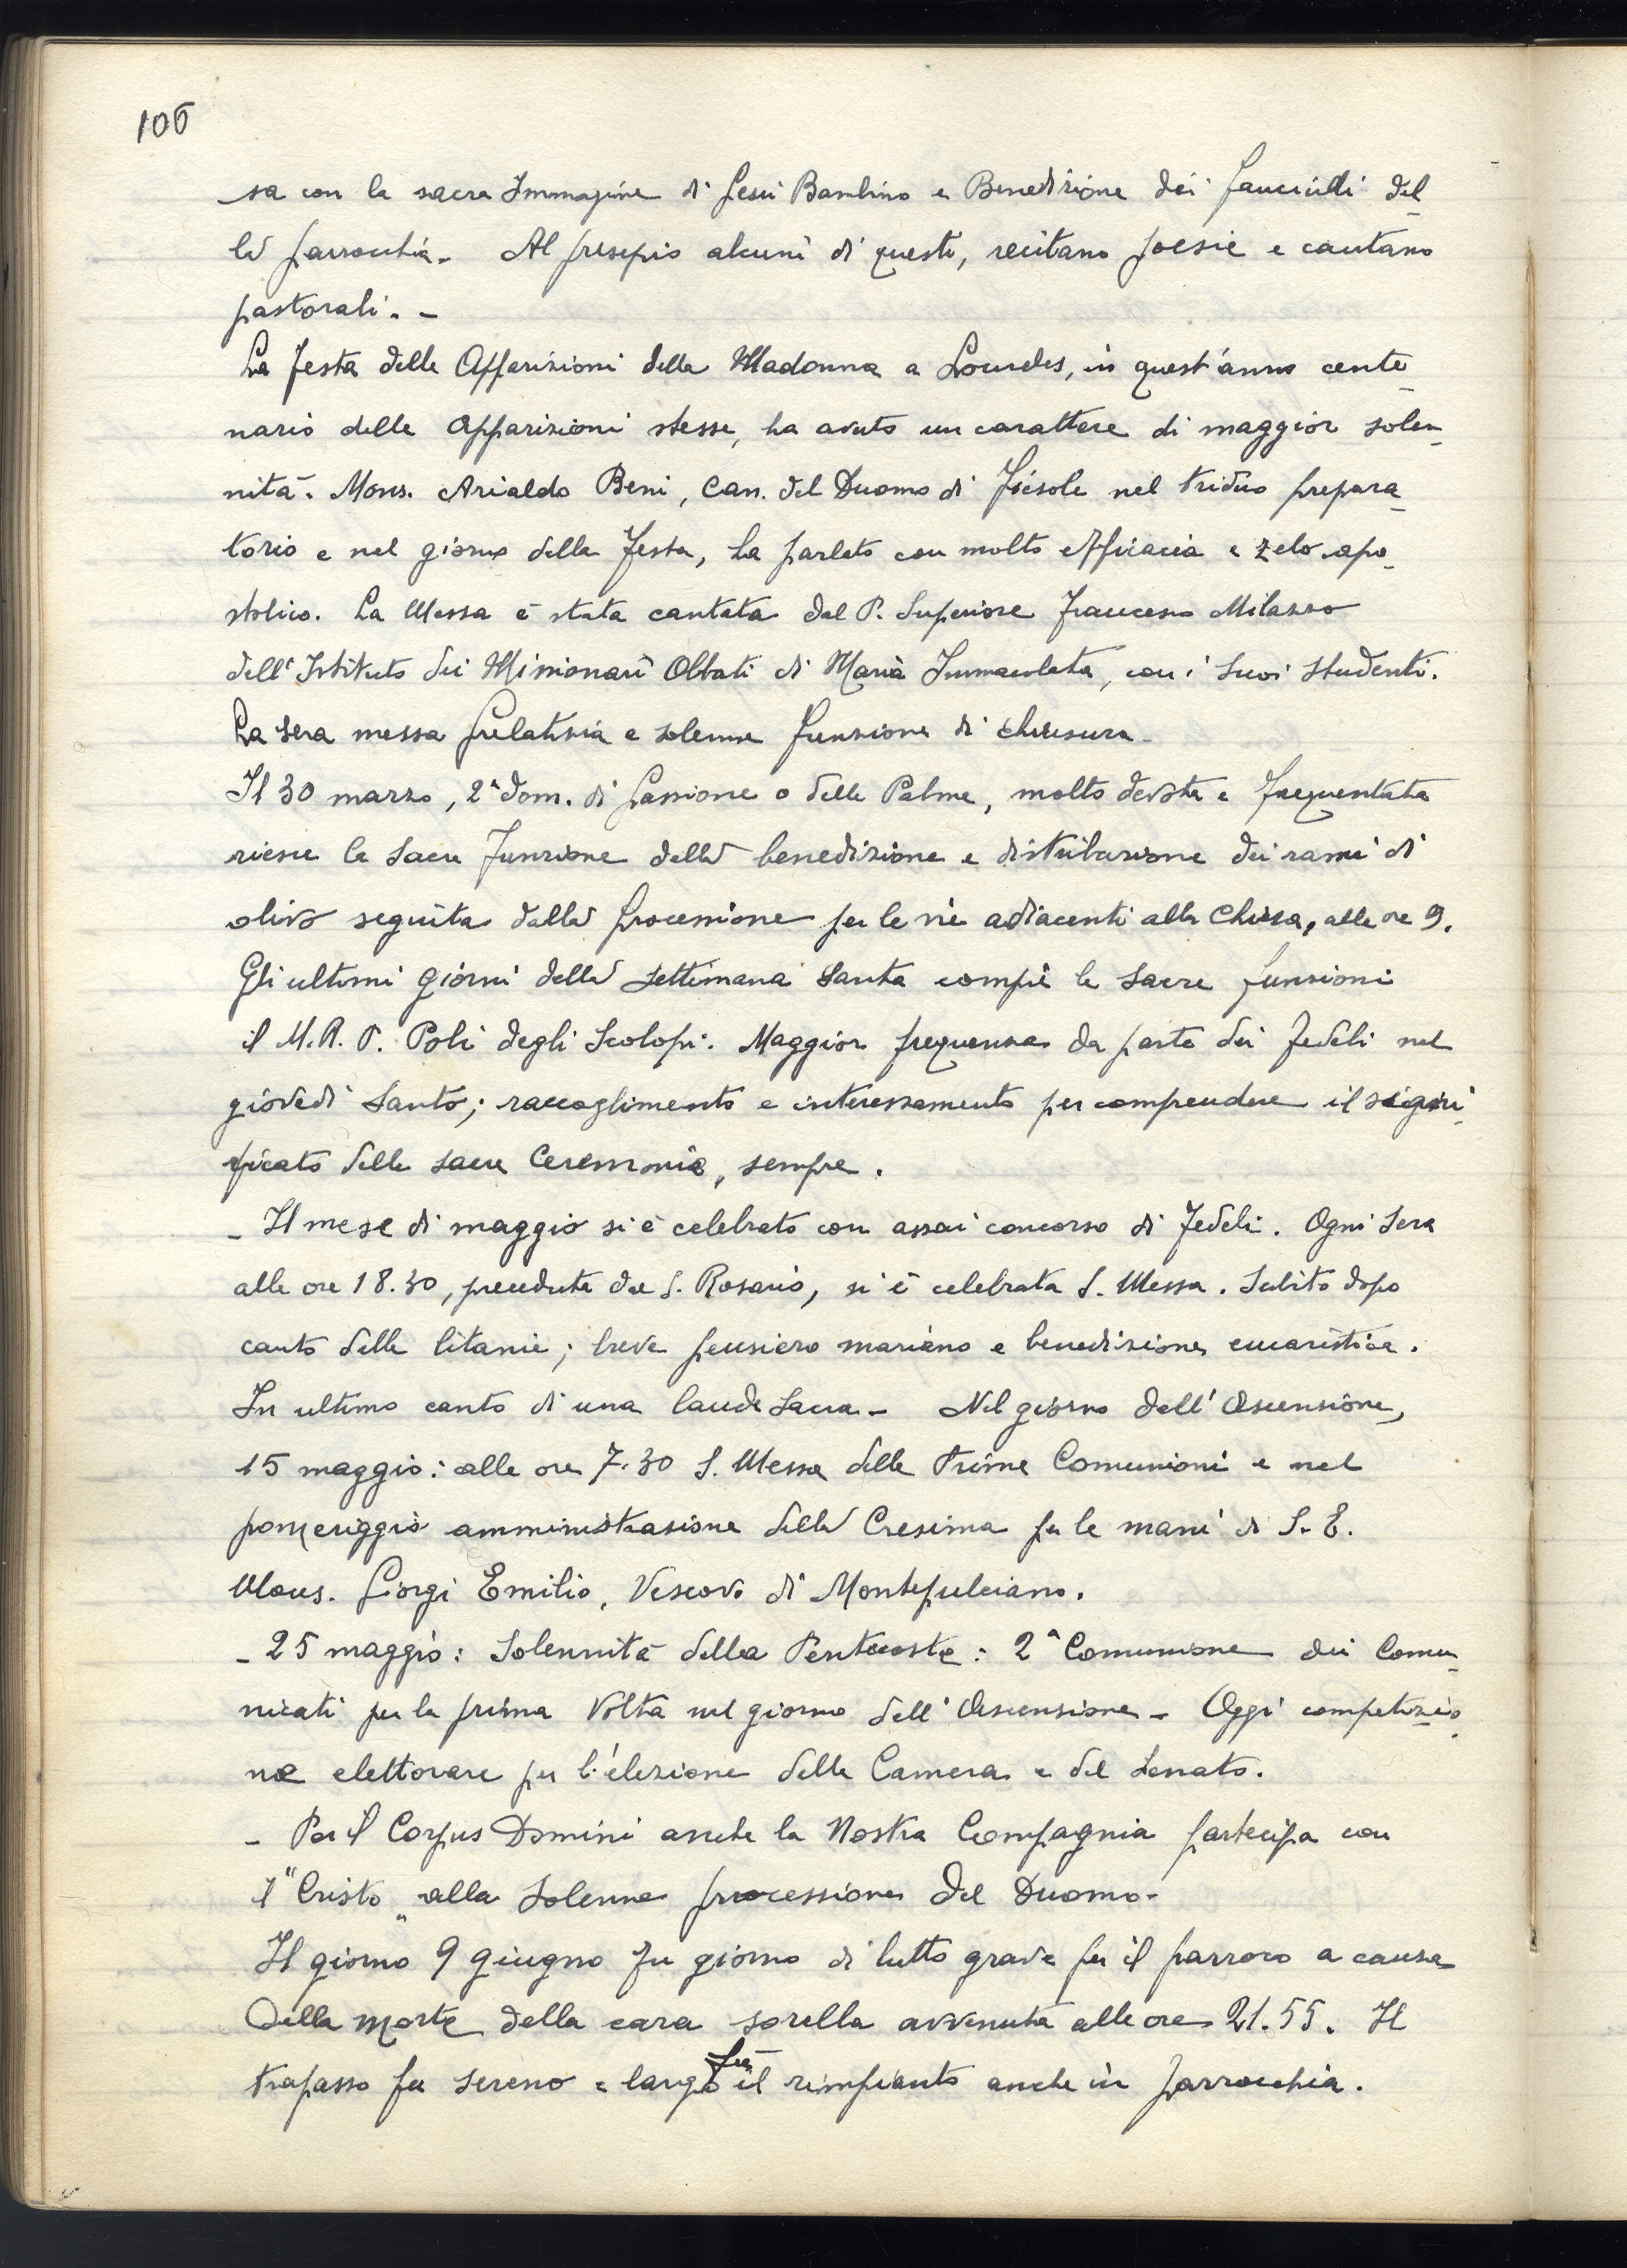 106
sa con la sacra Immagine di Gesù Bambino e Benedizione dei fanciulli del
la parrocchia. Al presepio alcuni di questi, recitano poesie e cantano
pastorali. -
La festa delle Apparizioni della Madonna a Lourdes, in quest'anno cente
nario delle Apparizioni stesse, ha avuto un carattere di maggior solen
nità. Mons. Arialdo Beni, Can. del Duomo di Fiesole nel triduo prepara
torio e nel giorno della festa, ha parlato con molta efficacia e zelo apo
stolico. La Messa è stata cantata dal P. Superiore Francesco Milazzo
dell'Istituto dei Missionari Oblati di Maria Immacolata, con i suoi studenti.
La sera messa prelatizia e solenne funzione di chiusura.
Il 30 marzo, 2ª dom. di passione o delle Palme, molto devota e frequentata
riesce la sacra funzione della benedizione e distribuzione dei rami di
olivo seguita dalla processione per le vie adiacenti alla Chiesa, alle ore 9.
Gli ultimi giorni della Settimana Santa compiè le sacre funzioni
il M.R.P. Poli degli Scolopi. Maggior frequenza da parte dei fedeli nel
giovedì Santo; raccoglimento e interessamento per comprendere il signi
ficato delle sacre Cerimonie, sempre.
- Il mese di maggio si è celebrato con assai concorso di fedeli. Ogni sera
alle ore 18.30, preceduta dal S. Rosario, si è celebrata S. Messa. Subito dopo
canto delle litanie; breve pensiero mariano e benedizione eucaristica.
In ultimo canto di una laude sacra - Nel giorno dell'Ascensione,
15 maggio: alle ore 7.30 S. Messa delle Prime Comunioni e nel
pomeriggio amministrazione della Cresima per le mani di S. E.
Mons. Giorgi Emilio, Vescovo di Montepulciano.
- 25 maggio: Solennità della Pentecoste: 2ª Comunione dei Comu
nicati per la prima volta nel giorno dell'Ascensione - Oggi competizio
ne elettorare per l'elezione della Camera e del Senato.
- Per il Corpus Domini anche la Nostra Compagnia partecipa con
il "Cristo" alla solenne processione del Duomo.
Il giorno 9 giugno fu giorno di lutto grave per il parroco a causa
della morte della cara sorella avvenuta alle ore 21.55. Il
trapasso fu sereno e largo fu il rimpianto anche in parrocchia.